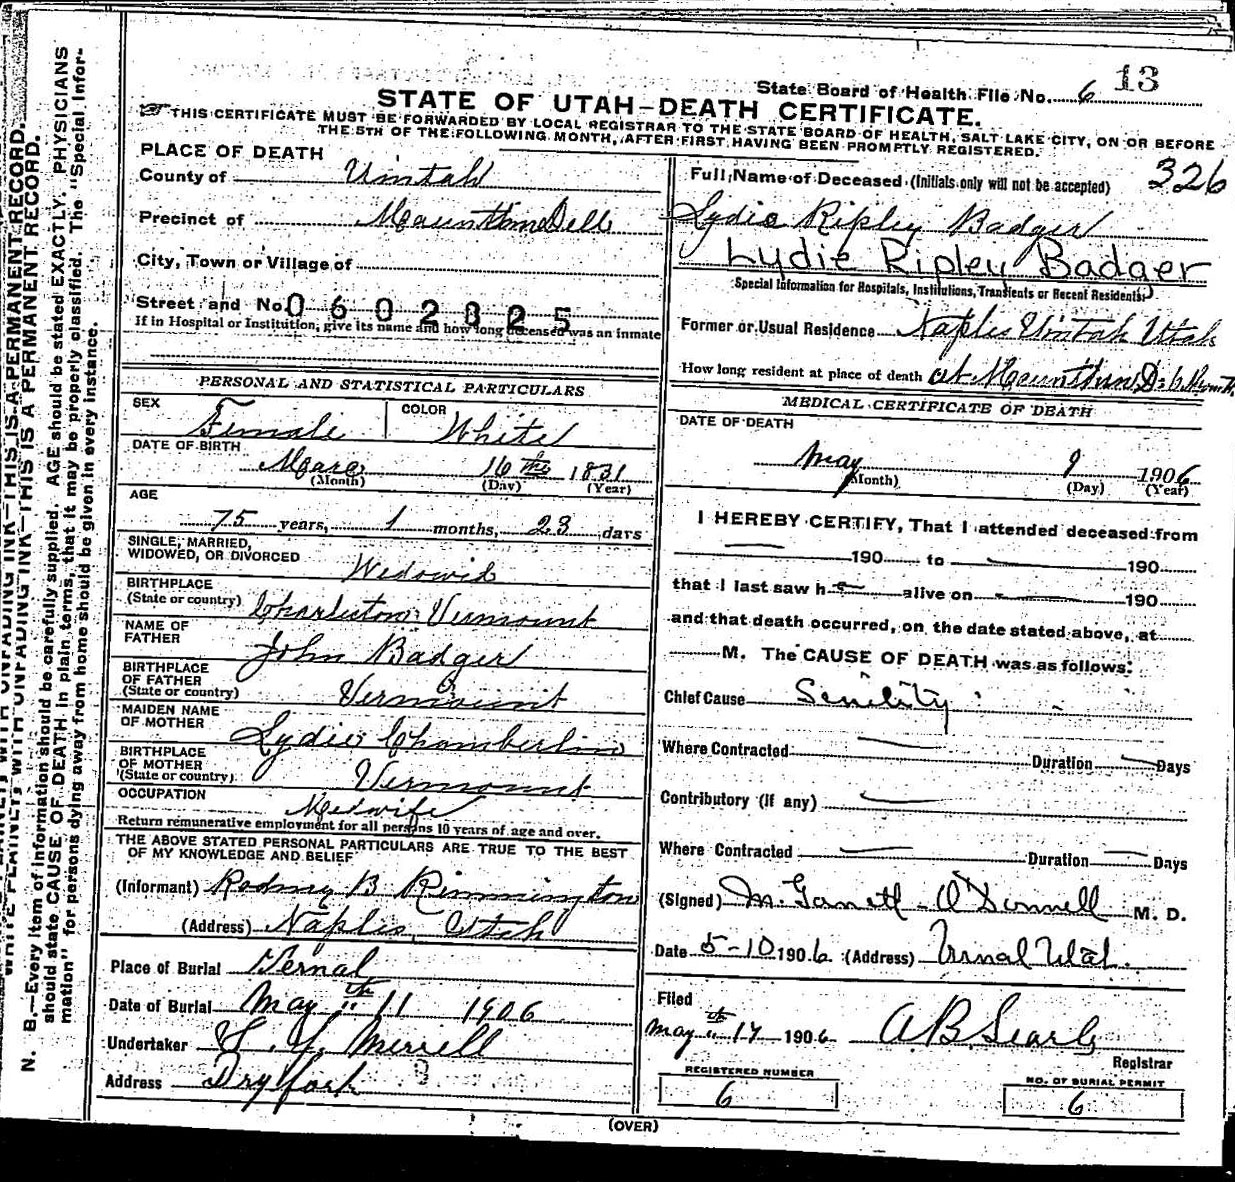 State Board of Health File No. 6 13
STATE OF UTAH—DEATH CERTIFICATE.
THIS CERTIFICATE MUST BE FORWARDED BY LOCAL REGISTRAR TO THE STATE BOARD OF HEALTH, SALT LAKE CITY, ON OR BEFORE
THE 5TH OF THE FOLLOWING MONTH, AFTER FIRST HAVING BEEN PROMPTLY REGISTERED.
326
PLACE OF DEATH
County of Uintah
Precinct of Mountin Dell
City, Town or Village of
Street and No. 0602825
If in Hospital or Institution, give its name and how long deceased was an inmate
PERSONAL AND STATISTICAL PARTICULARS
SEX Female COLOR White
DATE OF BIRTH
Marc 16 the 1831
(Month) (Day) (Year)
AGE
75 years, 1 months, 23 days
SINGLE, MARRIED,
WIDOWED, OR DIVORCED Widowid
BIRTHPLACE
(State or country) Charliston Vermount
NAME OF
FATHER John Badger
BIRTHPLACE
OF FATHER
(State or country) Vermount
MAIDEN NAME
OF MOTHER Lydie Chamberlin
BIRTHPLACE
OF MOTHER
(State or country) Vermount
OCCUPATION Midwife
Return remunerative employment for all persons 10 years of age and over.
THE ABOVE STATED PERSONAL PARTICULARS ARE TRUE TO THE BEST
OF MY KNOWLEDGE AND BELIEF
(Informant) Rodney B Rimmington
(Address) Naples, Utah
Place of Burial Vernal
Date of Burial May 11 th 1906
Undertaker Merrell
Address Dry fork
Full Name of Deceased (Initials only will not be accepted)
Lydie Ripley Badger
Lydie Ripley Badger
(Special Information for Hospitals, Institutions, Transients or Recent Residents.)
Former or Usual Residence Naples Uintah Utah
How long resident at place of death at Mounttun D. 6 Month
MEDICAL CERTIFICATE OF DEATH
DATE OF DEATH
May 9 1906
(Month) (Day) (Year)
I HEREBY CERTIFY, That I attended deceased from
190 to 190
that I last saw h alive on 190
and that death occurred, on the date stated above, at
M. The CAUSE OF DEATH was as follows:
Chief Cause Senility
Where Contracted Duration Days
Contributory (if any)
Where Contracted Duration Days
(Signed) M. Garrett O'Donnell M. D.
Date 5-10 1906 (Address) Vernal Utah.
Filed
May th 17 1906 A B Searle
Registrar
REGISTERED NUMBER
6
NO. OF BURIAL PERMIT
6
(OVER)
WRITE PLAINLY, WITH UNFADING INK—THIS IS A PERMANENT RECORD.
WRITE PLAINLY WITH UNFADING INK—THIS IS A PERMANENT RECORD.
N. B.—Every item of information should be carefully supplied. AGE should be stated EXACTLY. PHYSICIANS
should state CAUSE OF DEATH in plain terms, that it may be properly classified. The "Special Infor-
mation" for persons dying away from home should be given in every instance.